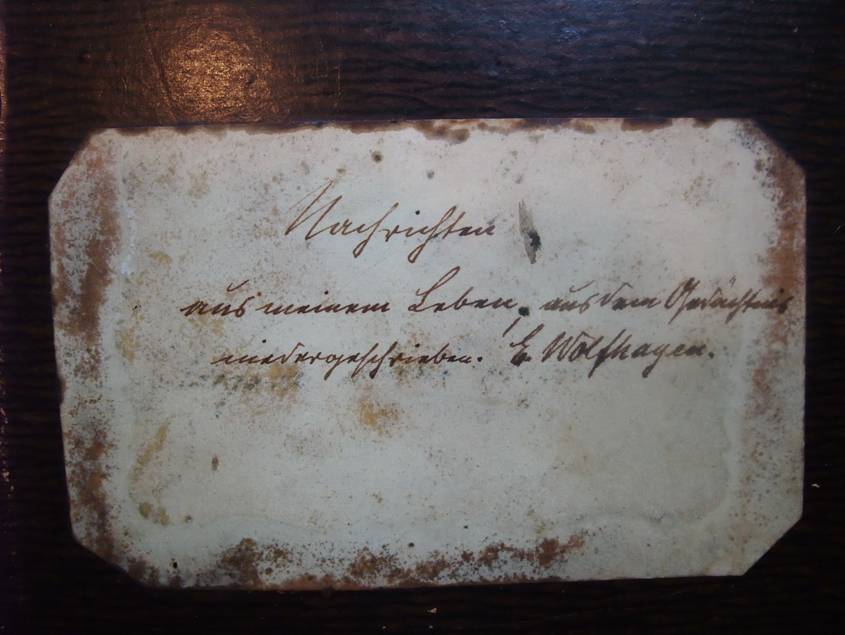 Nachrichten
aus meinem Leben, aus dem Gedächtnis
niedergeschrieben. E. Wolfhagen.